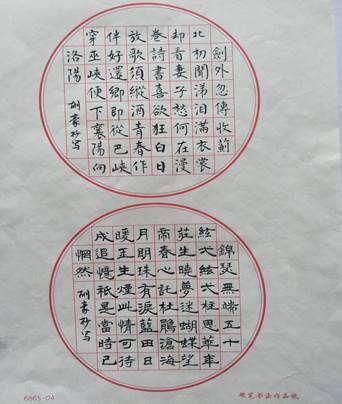 劍外忽傳收薊
北初聞涕泪滿衣裳
却看妻子愁何在漫
卷詩書喜欲狂白日
放歌須縱酒青春作
伴好還鄉即從巴峽
穿巫峽便下襄陽向
洛陽 胡豪抄写
錦瑟無端五十
絃弌絃弌柱思華年
莊生曉夢迷蝴蝶望
帝春心託杜鵑滄海
月明珠有淚藍田日
暖玉生煙此情可待
成追憶祇是當時已
惘然 胡豪抄写
6865-04
硬笔书法作品纸